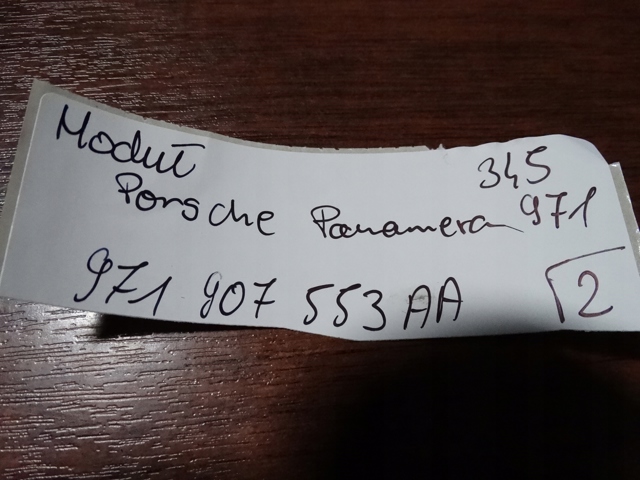 Moduł 345
Porsche Panamera 971
971 907 553 AA 2